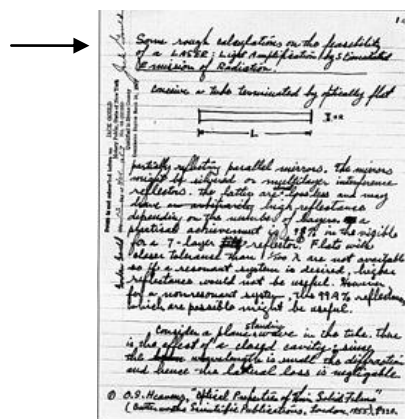 Some rough calculations on the feasibility
of a LASER: Light Amplification by Stimulated
Emission of Radiation.
conceive a tube terminated by optically flat
L
partially reflecting parallel mirrors. The mirrors
might be silvered or multilayer interference
reflectors. The latter are loss less and may
have an arbitrarily high reflectance
depending on the number of layers. a
practical achievement is 98% in the visible
for a 7-layer reflector. Flats with
closer tolerance than λ are not available
so if a resonant system is desired, higher
reflectance would not be useful. However
for a nonresonant system, the 99.9% reflectances
which are possible might be useful.
Consider a plane standing wave in the tube. There
is the effect of a closed cavity; since
the wavelength is small the diffraction
and hence the lateral loss is negligable.
O.S. Heavens, "Optical Properties of Thin Solid Films"
(Butterworths Scientific Publications, London, 1955)
JACK GOULD
Notary Public, State of New York
Gordon Gould